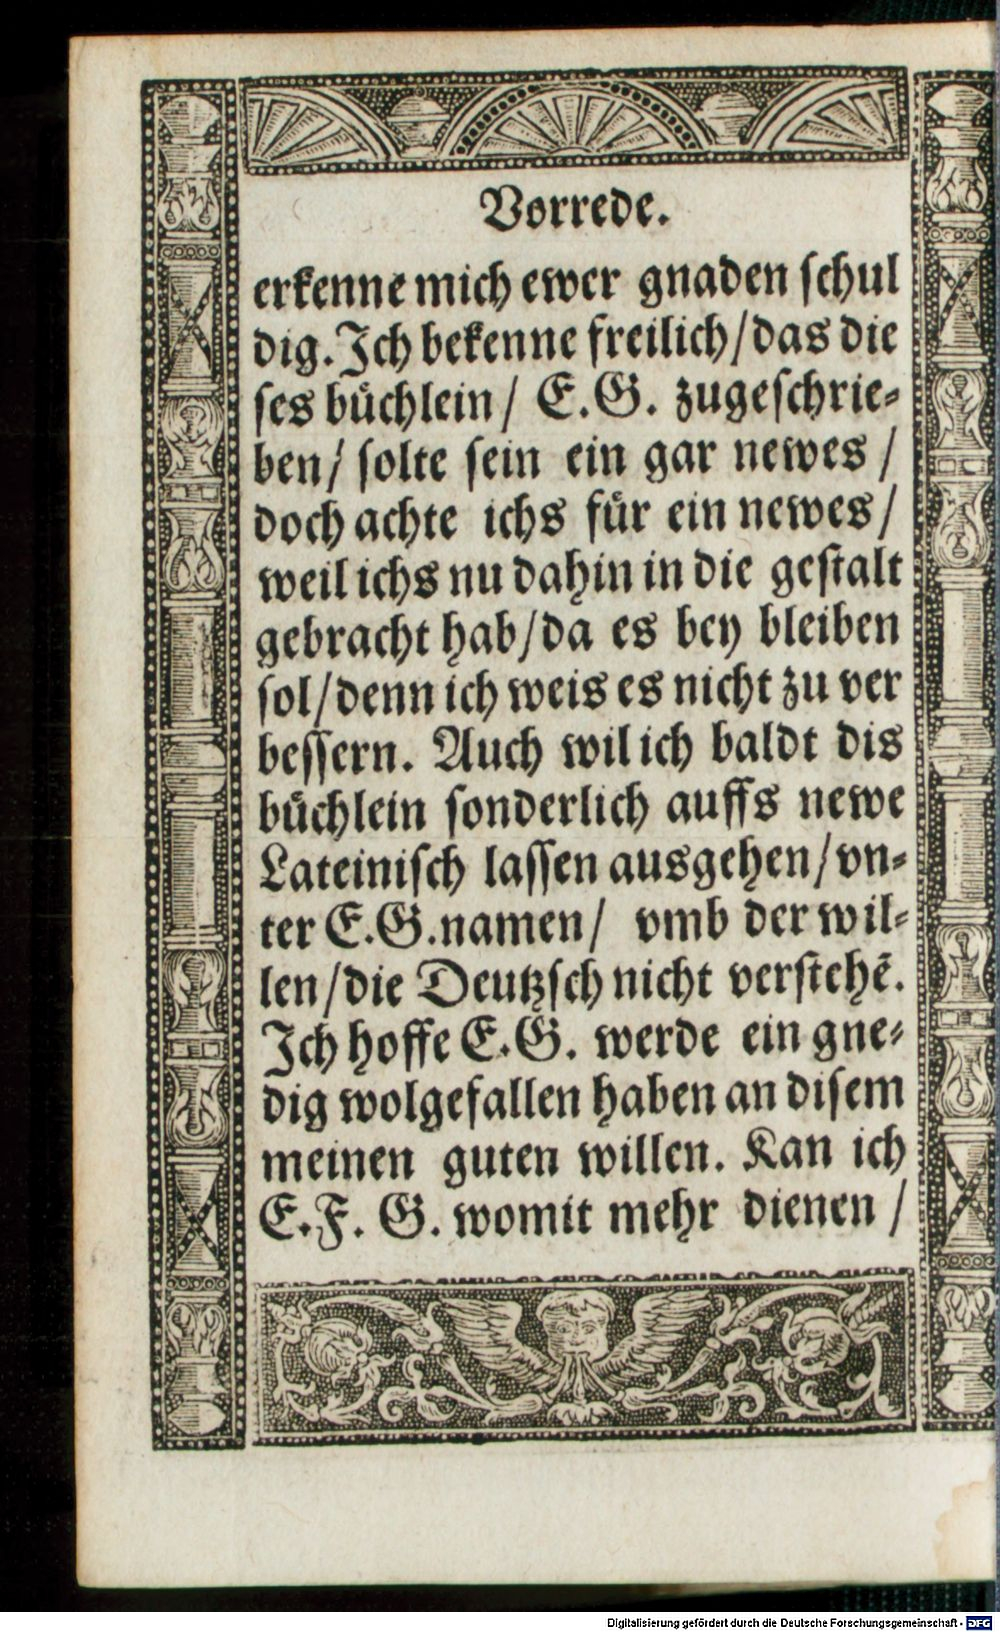 Vorrede.
erkenne mich ewer gnaden schul
dig. Ich bekenne freilich/das die
ses bůchlein/ E.G. zugeschrie⸗
ben/ solte sein ein gar newes /
doch achte ichs für ein newes/
weil ichs nu dahin in die gestalt
gebracht hab/da es bey bleiben
sol/denn ich weis es nicht zu ver
bessern. Auch wil ich baldt dis
bůchlein sonderlich auffs newe
Lateinisch lassen ausgehen/vn⸗
ter E.G.namen/ vmb der wil⸗
len/die Deutzsch nicht verstehē.
Ich hoffe E.G. werde ein gne⸗
dig wolgefallen haben an disem
meinen guten willen. Kan ich
E.F. G. womit mehr dienen /
Digitalisierung gefördert durch die Deutsche Forschungsgemeinschaft - DFG